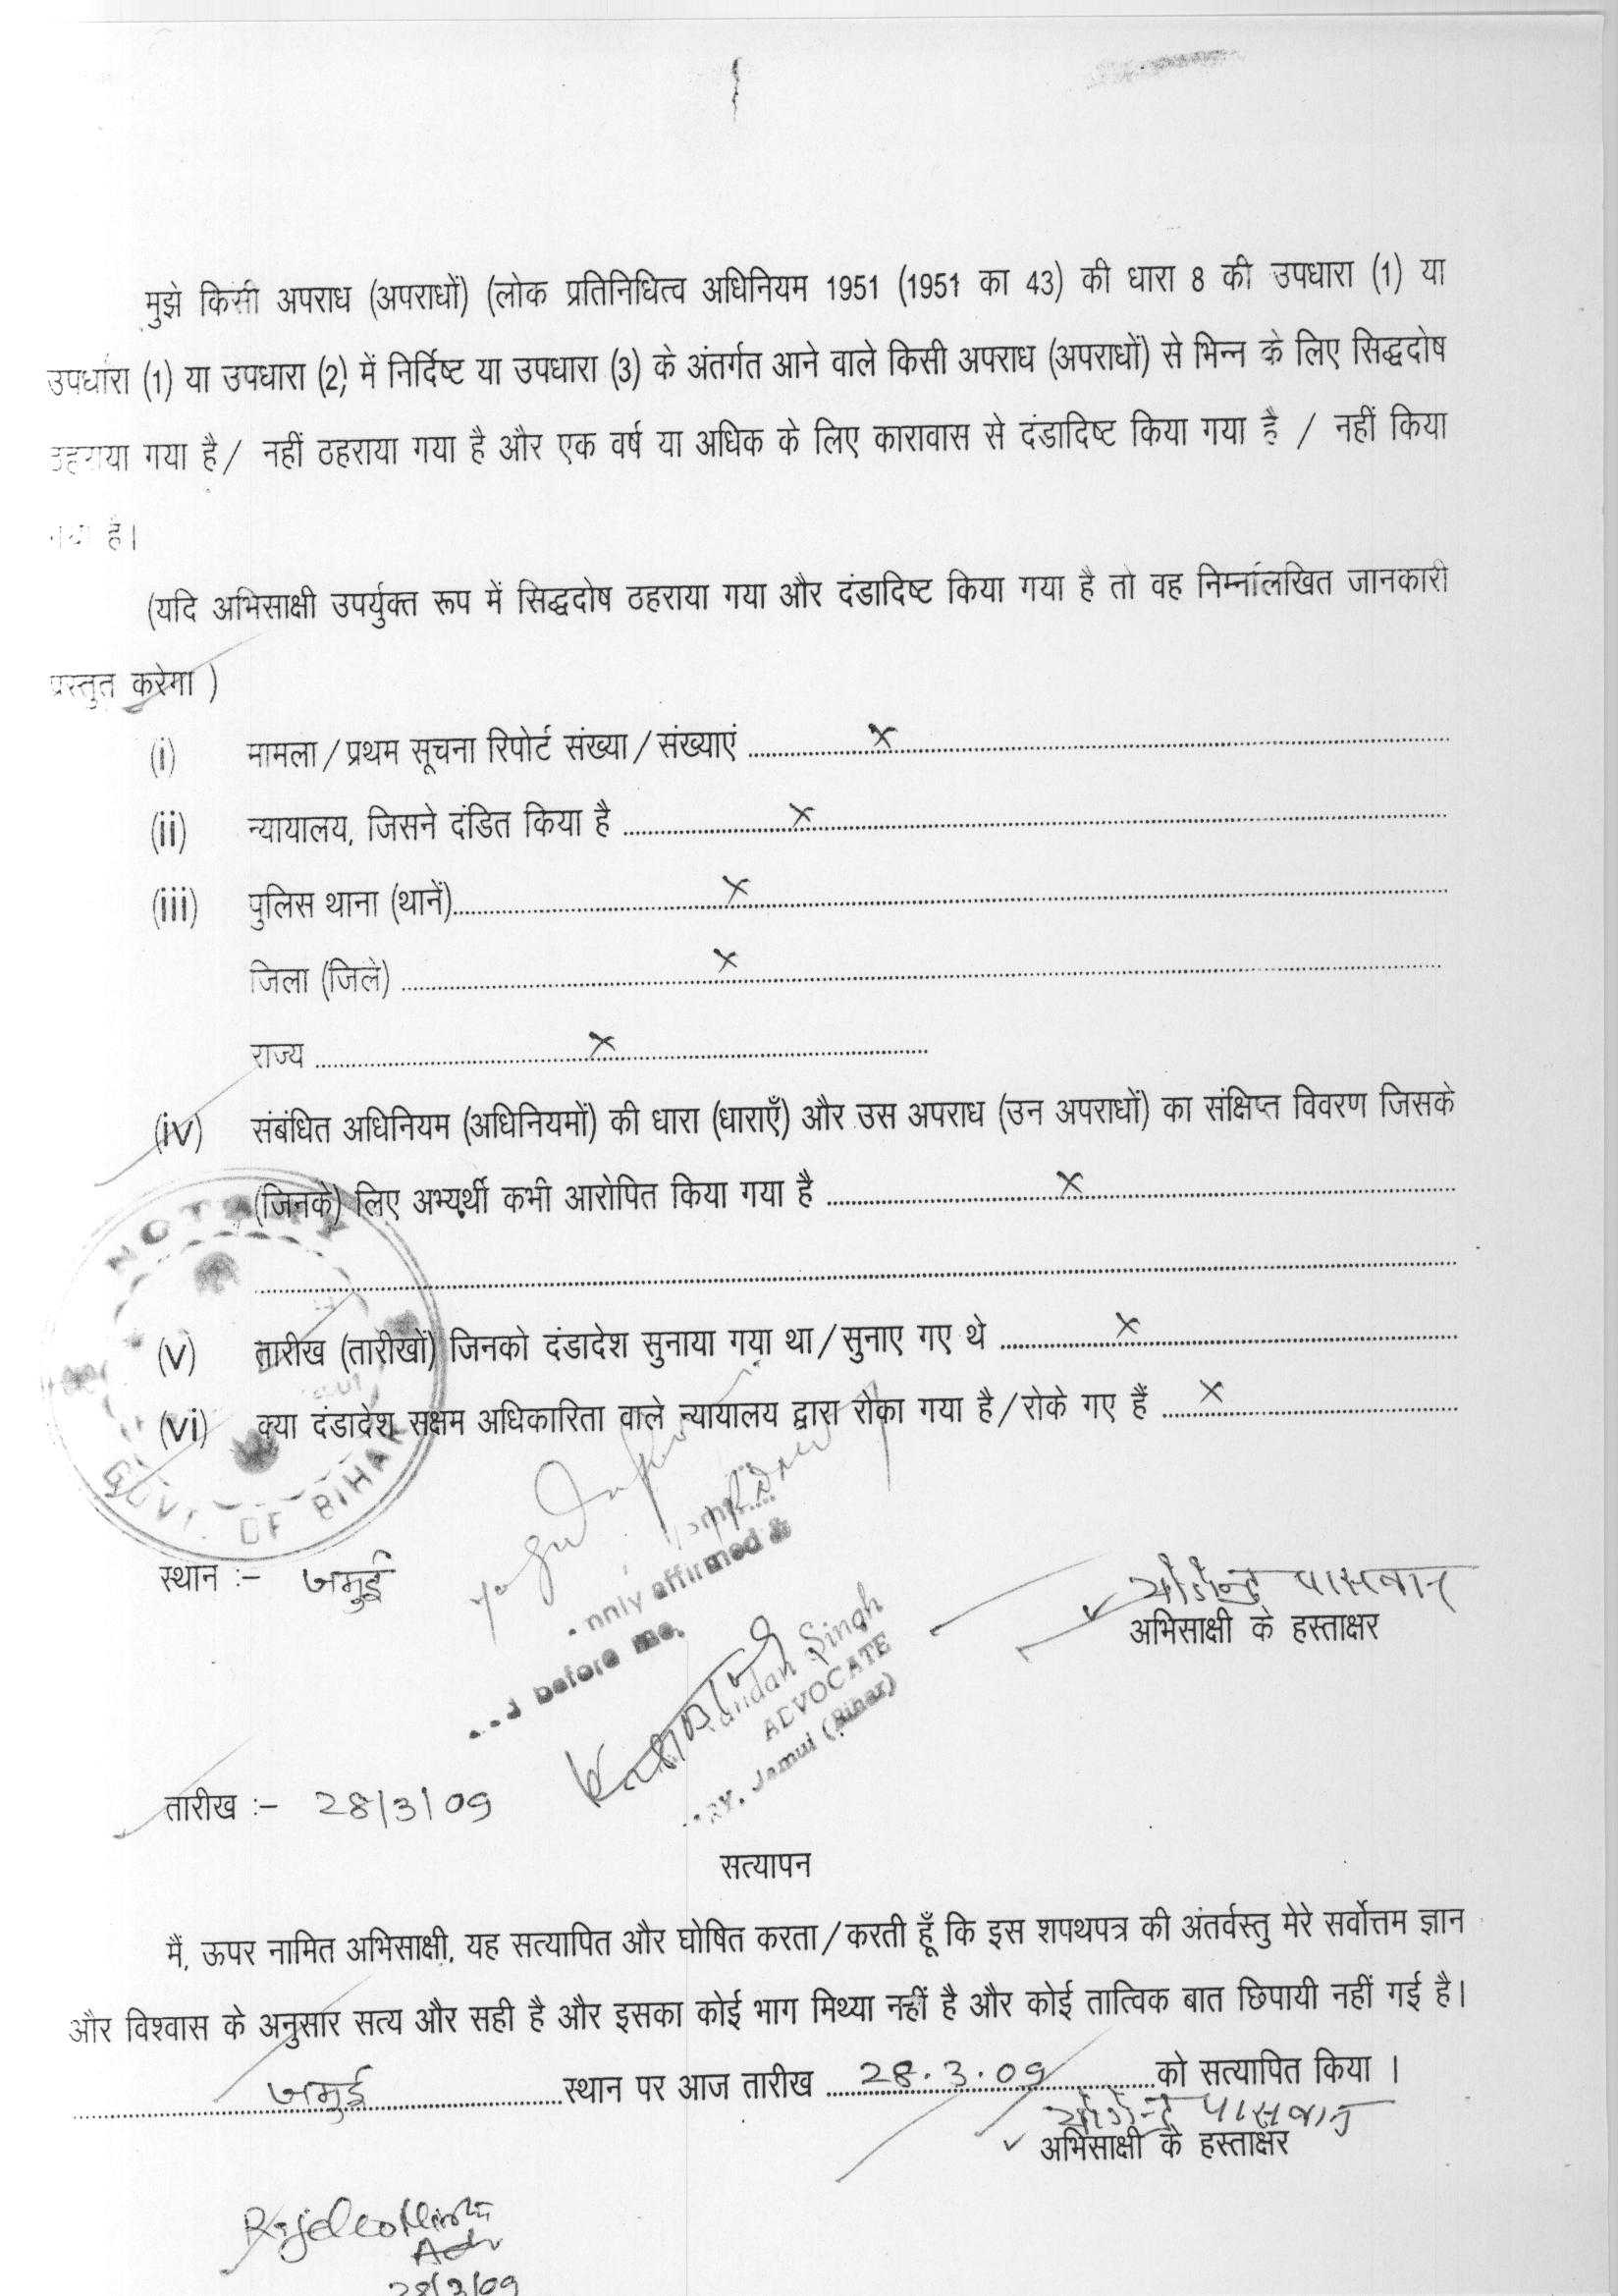 मुझे किसी अपराध (अपराधों) (लोक प्रतिनिधित्व अधिनियम 1951 (1951 का 43) की धारा 8 की उपधारा (1) या
उपधारा (1) या उपधारा (2) में निर्दिष्ट या उपधारा (3) के अंतर्गत आने वाले किसी अपराध (अपराधों) से भिन्न के लिए सिद्धदोष
ठहराया गया है/ नहीं ठहराया गया है और एक वर्ष या अधिक के लिए कारावास से दंडादिष्ट किया गया है / नहीं किया
गया है।
(यदि अभिसाक्षी उपर्युक्त रूप में सिद्धदोष ठहराया गया और दंडादिष्ट किया गया है तो वह निम्नलिखित जानकारी
प्रस्तुत करेगा )
(i) मामला/प्रथम सूचना रिपोर्ट संख्या/संख्याएं .......... x ..........
(ii) न्यायालय, जिसने दंडित किया है .......... x ..........
(iii) पुलिस थाना (थानें).......... x ..........
जिला (जिले) .......... x ..........
राज्य .......... x ..........
(iv) संबंधित अधिनियम (अधिनियमों) की धारा (धाराएँ) और उस अपराध (उन अपराधों) का संक्षिप्त विवरण जिसके
(जिनके) लिए अभ्यर्थी कभी आरोपित किया गया है .......... x ..........
(v) तारीख (तारीखों) जिनको दंडादेश सुनाया गया था/सुनाए गए थे .......... x ..........
(vi) क्या दंडादेश सक्षम अधिकारिता वाले न्यायालय द्वारा रोका गया है/रोके गए हैं .......... x ..........
NOTARY
GOVT. OF BIHAR
affirmed &
before me.
स्थान :- जमुई
योगेन्द्र पासवान
अभिसाक्षी के हस्ताक्षर
Singh
ADVOCATE
Jamui (Bihar)
तारीख :- 28/3/09
सत्यापन
मैं, ऊपर नामित अभिसाक्षी, यह सत्यापित और घोषित करता/करती हूँ कि इस शपथपत्र की अंतर्वस्तु मेरे सर्वोत्तम ज्ञान
और विश्वास के अनुसार सत्य और सही है और इसका कोई भाग मिथ्या नहीं है और कोई तात्विक बात छिपायी नहीं गई है।
.......... जमुई ..........स्थान पर आज तारीख .......... 28.3.09 ..........को सत्यापित किया ।
योगेन्द्र पासवान
अभिसाक्षी के हस्ताक्षर
Adv
28/3/09